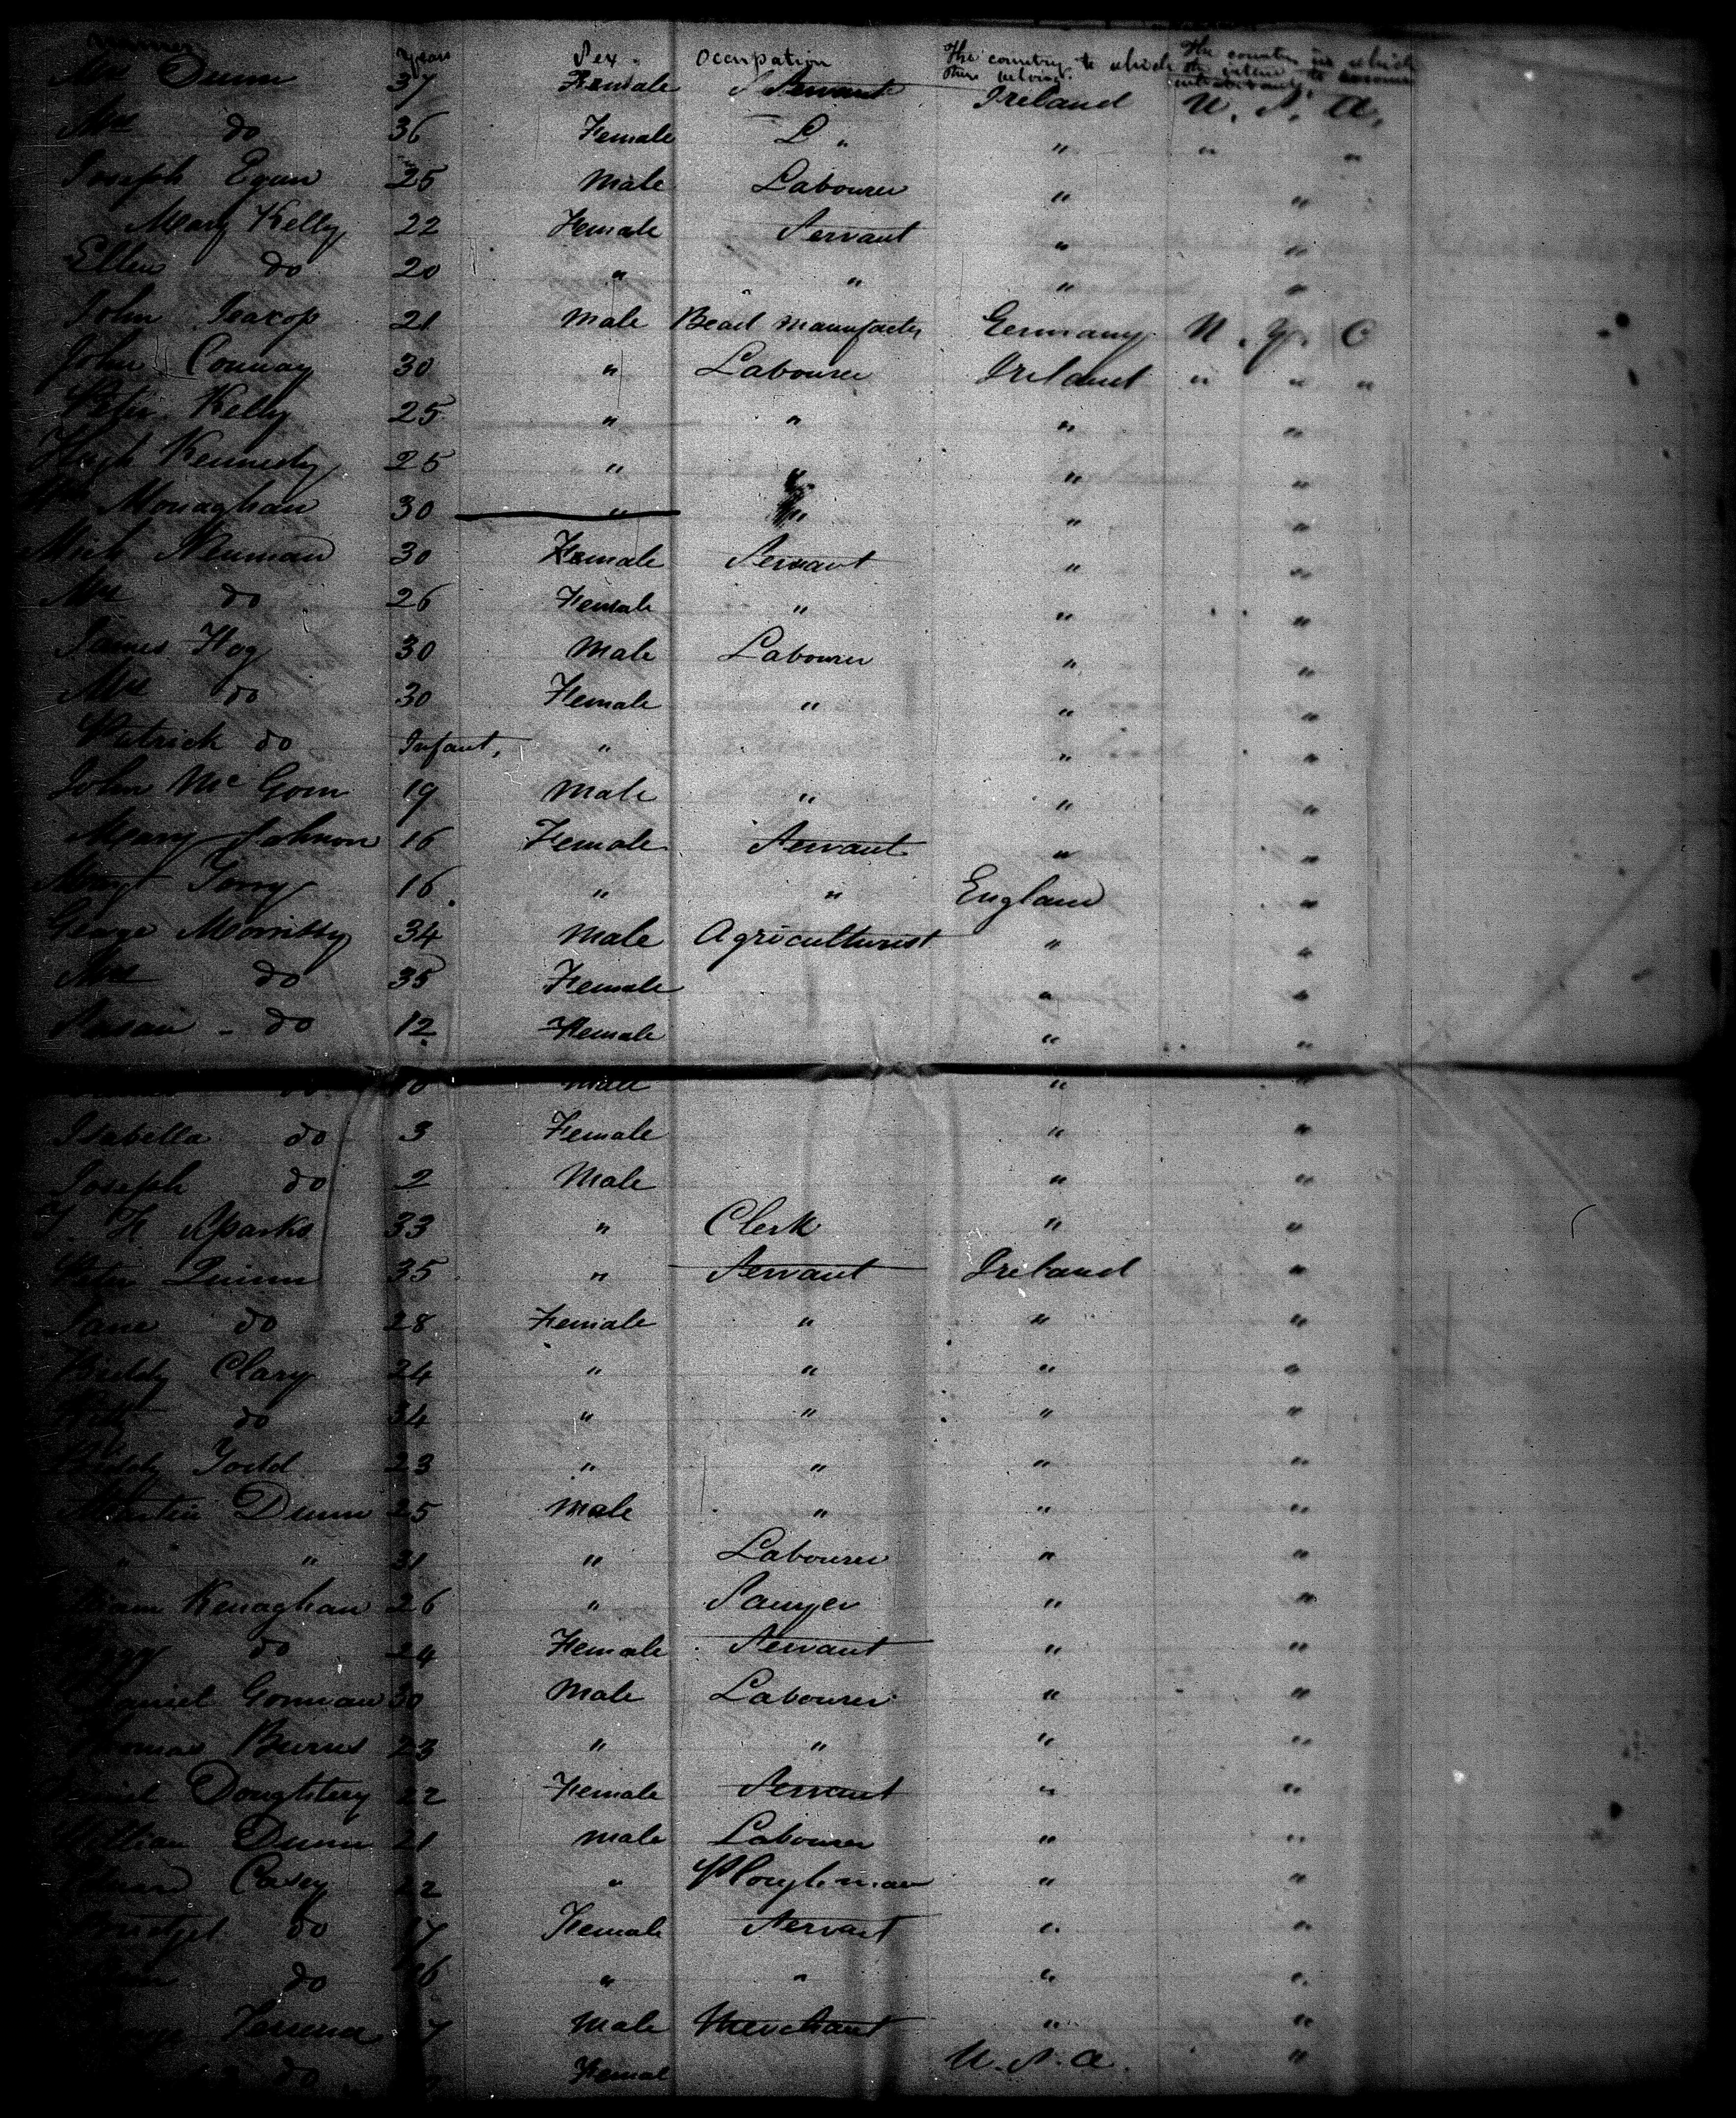 Names years Sex. Occupation The country to which they belong. The country in which they intend to become inhabitants.
Dunn 37 Female Servant Ireland U. S. A.
Mrs do 36 Female L " " " "
Joseph Egan 25 Male Labourer " "
Mary Kelly 22 Female Servant " "
Ellen do 20 " " " "
John 21 Male Bead Manufacter Germany N. Y. C
John Conway 30 " Labourer Ireland " " "
Peter Kelly 25 " " " "
Hugh Kennedy 25 " " " "
Monaghan 30 " " " "
Mich Neuman 30 Female Servant " "
Mrs do 26 Female " " "
James Hog 30 Male Labourer " "
Mrs do 30 Female " " "
Patrick do Infant, " " "
John Mc Gorn 19 Male " " "
Mary Johnson 16 Female Servant " "
Margt Torry 16. " " England "
George Morritty 34 Male Agriculturist " "
Mrs do 35 Female " "
Susan - do 12 Female " "
do 10 Male " "
Isabella do 3 Female " "
Joseph do 2 Male " "
H. Sparks 33 " Clerk " "
Peter Quinn 35 " Servant Ireland "
Jane do 28 Female " " "
Biddy Clary 24 " " " "
do 34 " " " "
Biddy Todd 23 " " " "
Martin Dunn 25 Male " " "
" " 31 " Labourer " "
Kenaghan 26 " Sawyer " "
do 24 Female Servant " "
Daniel Gorman 30 Male Labourer " "
Thomas Burns 23 " " " "
Doughtery 22 Female Servant " "
William Dunn 21 Male Labourer " "
Edward Casey 22 " Ploughman " "
Bridget do 17 Female Servant " "
do 16 " " " "
Male Merchant " "
do Femal U. S. A. "